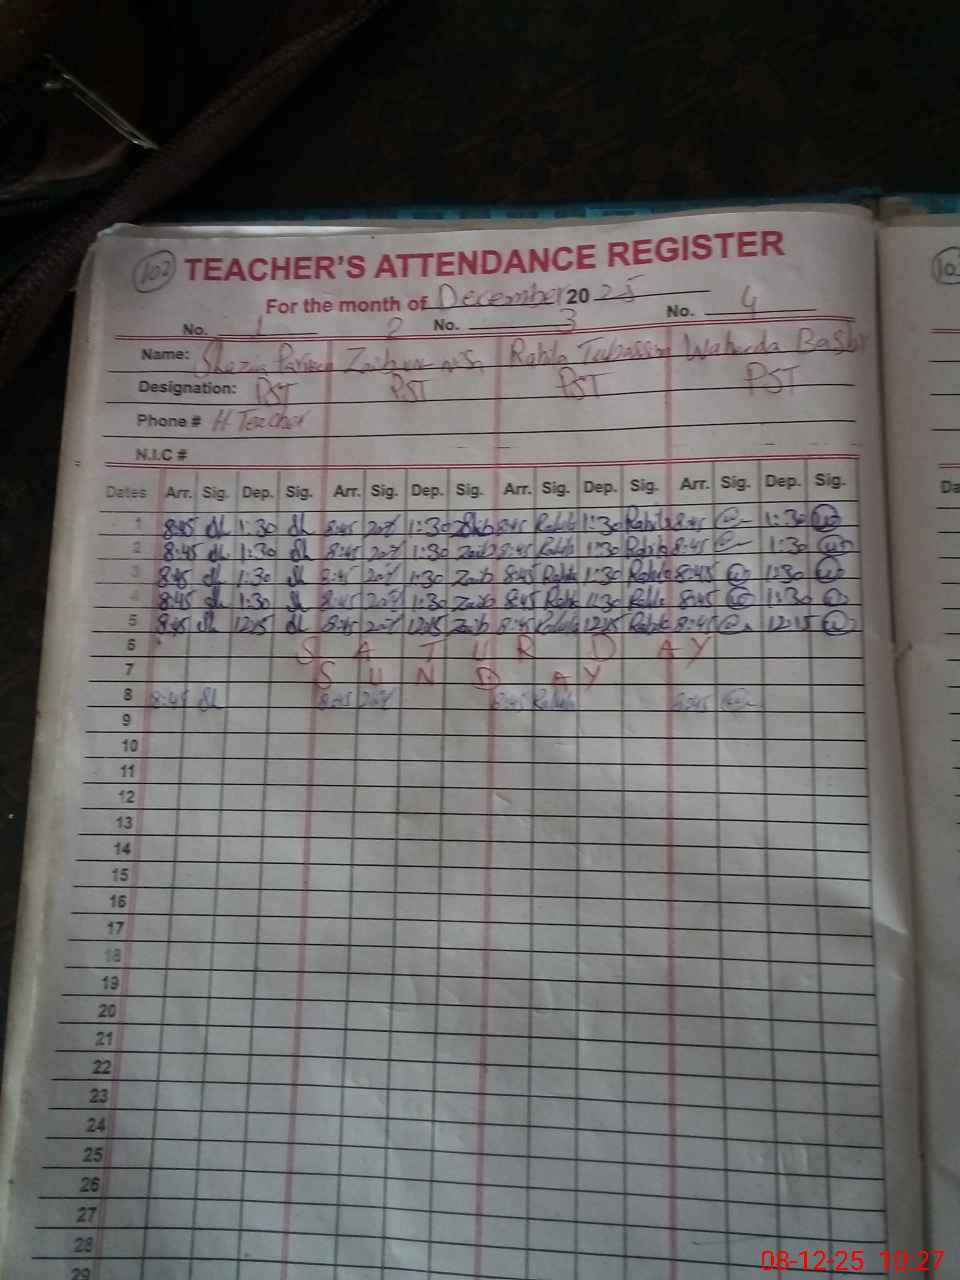 102 TEACHER'S ATTENDANCE REGISTER 10
For the month of December 2025
No. 1 2 No. 3 No. 4
Name: Shazia Parveen Zaib un nisa Rahila Tabassum Waheeda Bashir
Designation: PST PST PST PST
Phone # H Teacher
N.I.C #
Dates Arr. Sig. Dep. Sig. Arr. Sig. Dep. Sig. Arr. Sig. Dep. Sig. Arr. Sig. Dep. Sig. Da
1 8:45 1:30 8:45 1:30 Zaib 8:45 Rahila 1:30 Rahila 8:45 1:30
2 8:45 1:30 8:45 1:30 Zaib 8:45 Rahila 1:30 Rahila 8:45 1:30
3 8:45 1:30 8:45 1:30 Zaib 8:45 Rahila 1:30 Rahila 8:45 1:30
4 8:45 1:30 8:45 1:30 Zaib 8:45 Rahila 1:30 Rahila 8:45 1:30
5 8:45 12:15 8:45 12:15 Zaib 8:45 Rahila 12:15 Rahila 8:45 12:15
6 SATURDAY
7 SUNDAY
8 8:45 8:45 8:45 Rahila 8:45
9
10
11
12
13
14
15
16
17
18
19
20
21
22
23
24
25
26
27
28
29
08-12-25 10:27